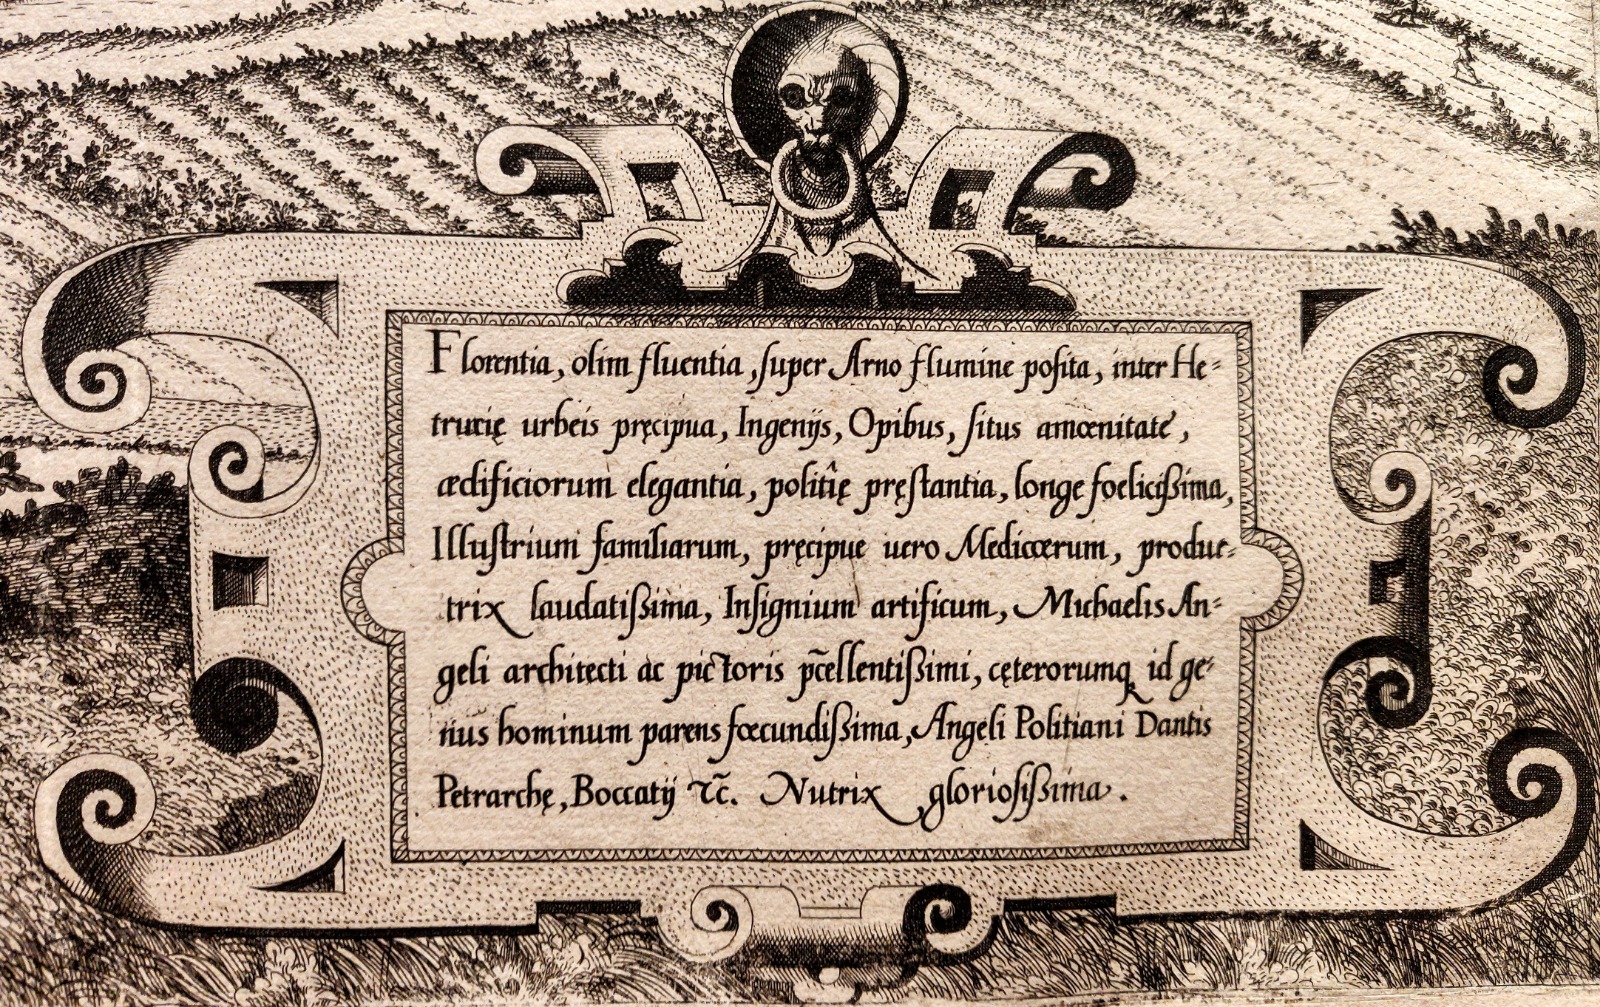 Florentia, olim fluentia, ſuper Arno flumine poſita, inter He⸗
trurię urbeis pręcipua, Ingenijs, Opibus, ſitus amœnitate,
ædificiorum elegantia, politię pręſtantia, longe foeliciſsima,
Illuſtrium familiarum, pręcipue uero Mediceorum, produc⸗
trix laudatiſsima, Inſignium artificum, Michaelis An⸗
geli architecti ac pictoris p̄cellentiſsimi, cęterorumq id ge⸗
nus hominum parens fœcundiſsima, Angeli Politiani Dantis
Petrarchę, Boccatij ⁊c̄. Nutrix glorioſiſsima.